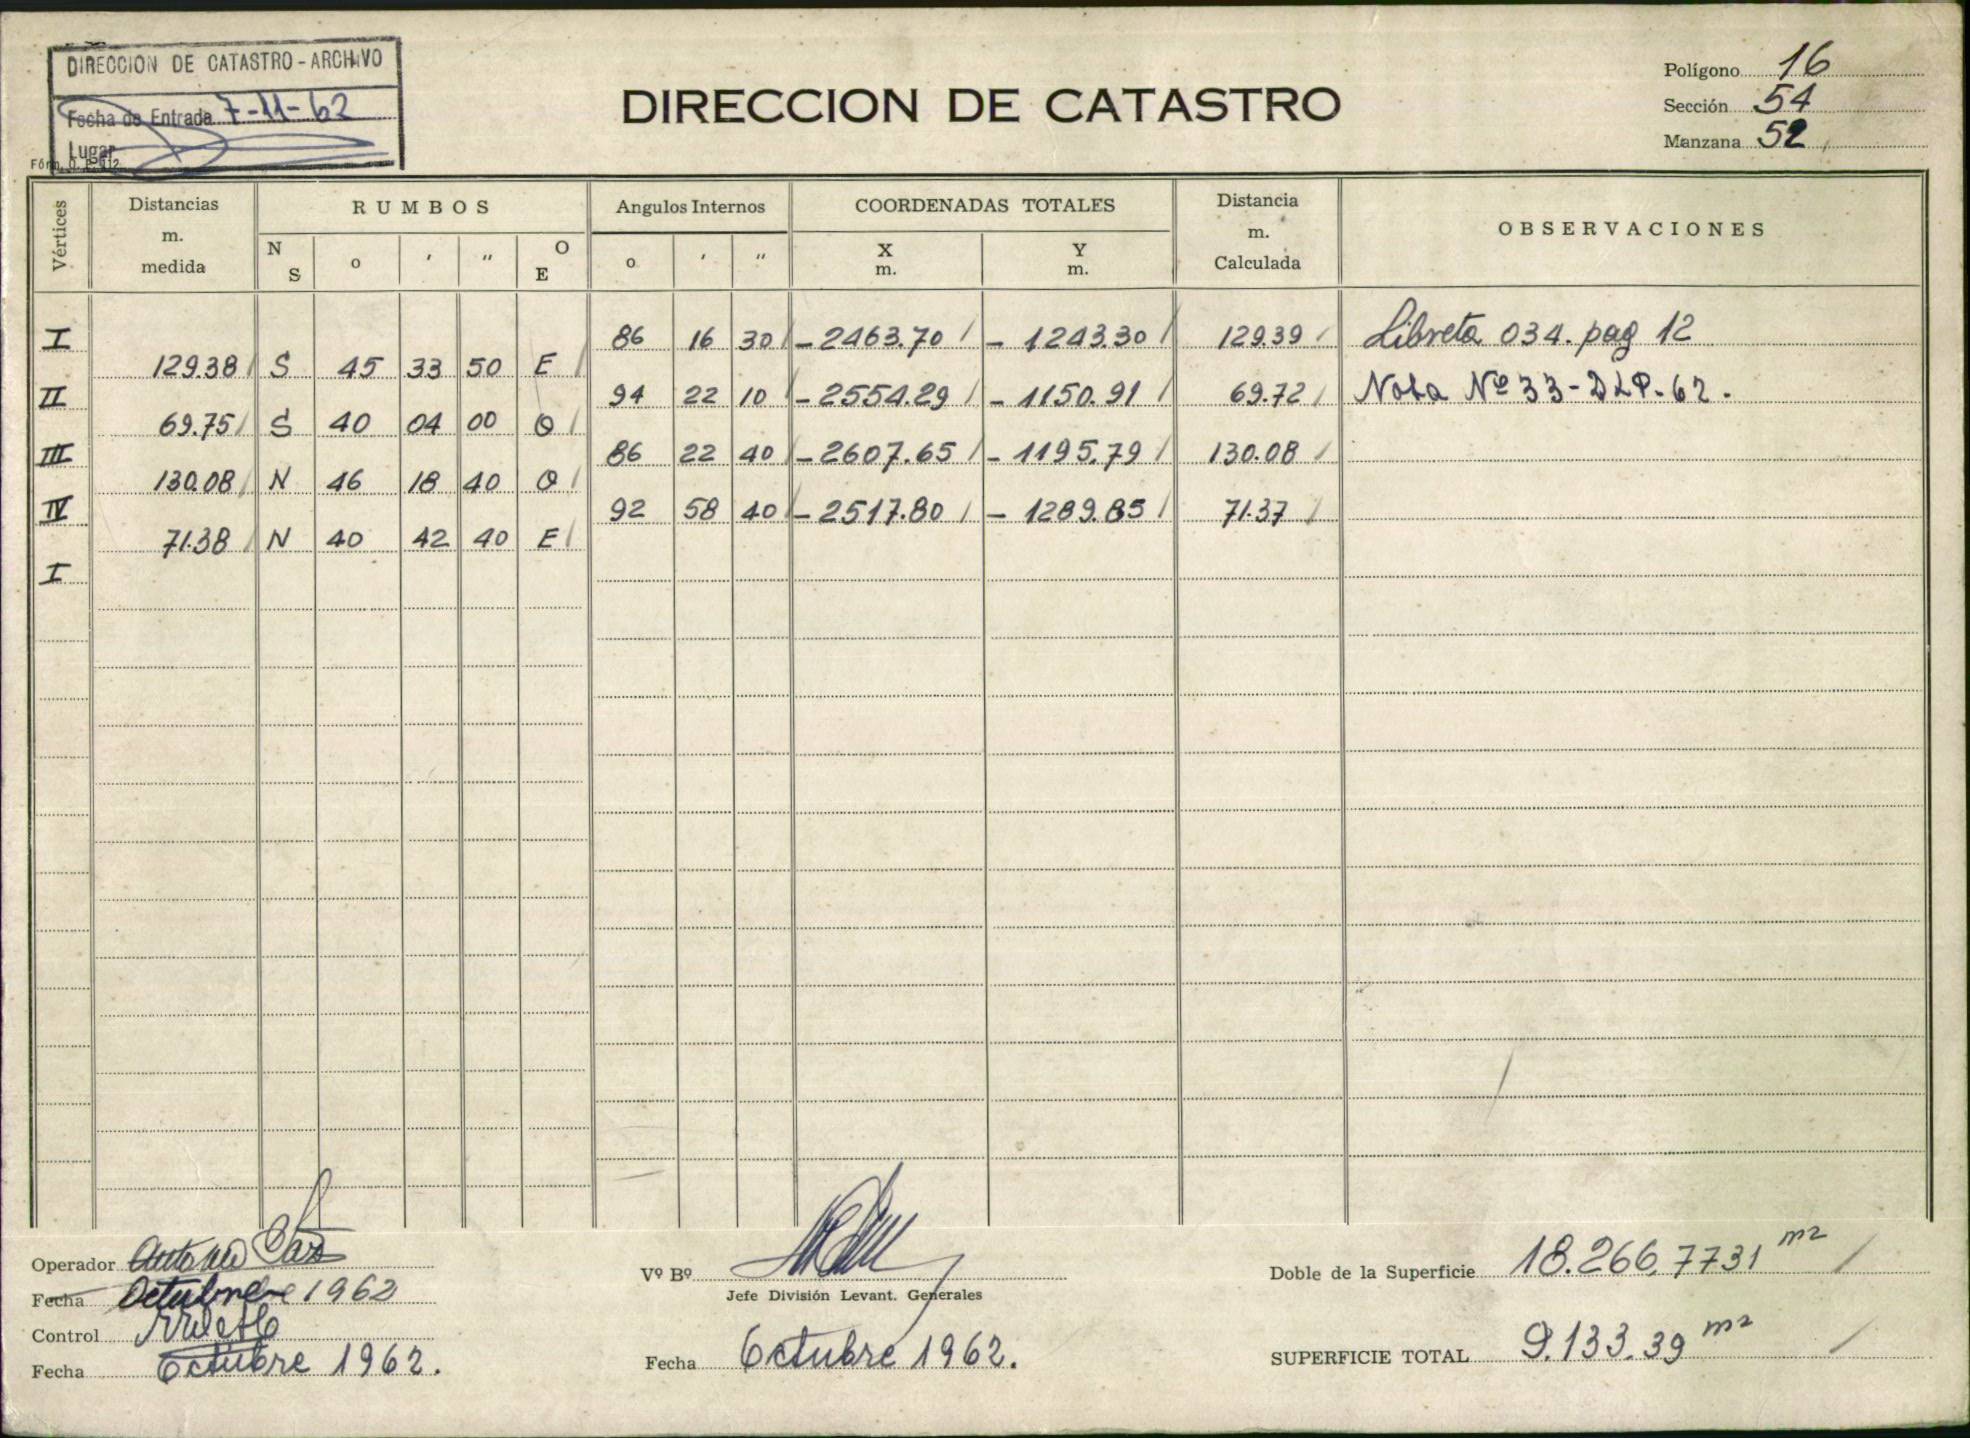 DIRECCION DE CATASTRO - ARCHIVO
Fecha de Entrada 7-11-62
Lugar
DIRECCION DE CATASTRO
Polígono 16
Sección 54
Manzana 52
Vértices
Distancias m. medida
RUMBOS
Angulos Internos
COORDENADAS TOTALES
Distancia m. Calculada
OBSERVACIONES
N S o ' " O E o ' " X m. Y m.
I 86 16 30 -2463.70 -1243.30 129.39 Libreta 034. pag 12
129.38 S 45 33 50 E
II 94 22 10 -2554.29 -1150.91 69.72 Nota Nº 33-DLP-62.
69.75 S 40 04 00 O
III 86 22 40 -2607.65 -1195.79 130.08
130.08 N 46 18 40 O
IV 92 58 40 -2517.80 -1289.85 71.37
71.38 N 40 42 40 E
I
Operador Antonio
Fecha Octubre 1962
Control
Fecha Octubre 1962.
Vº Bº
Jefe División Levant. Generales
Fecha Octubre 1962.
Doble de la Superficie 18.266,7731 m2
SUPERFICIE TOTAL 9.133.39 m2